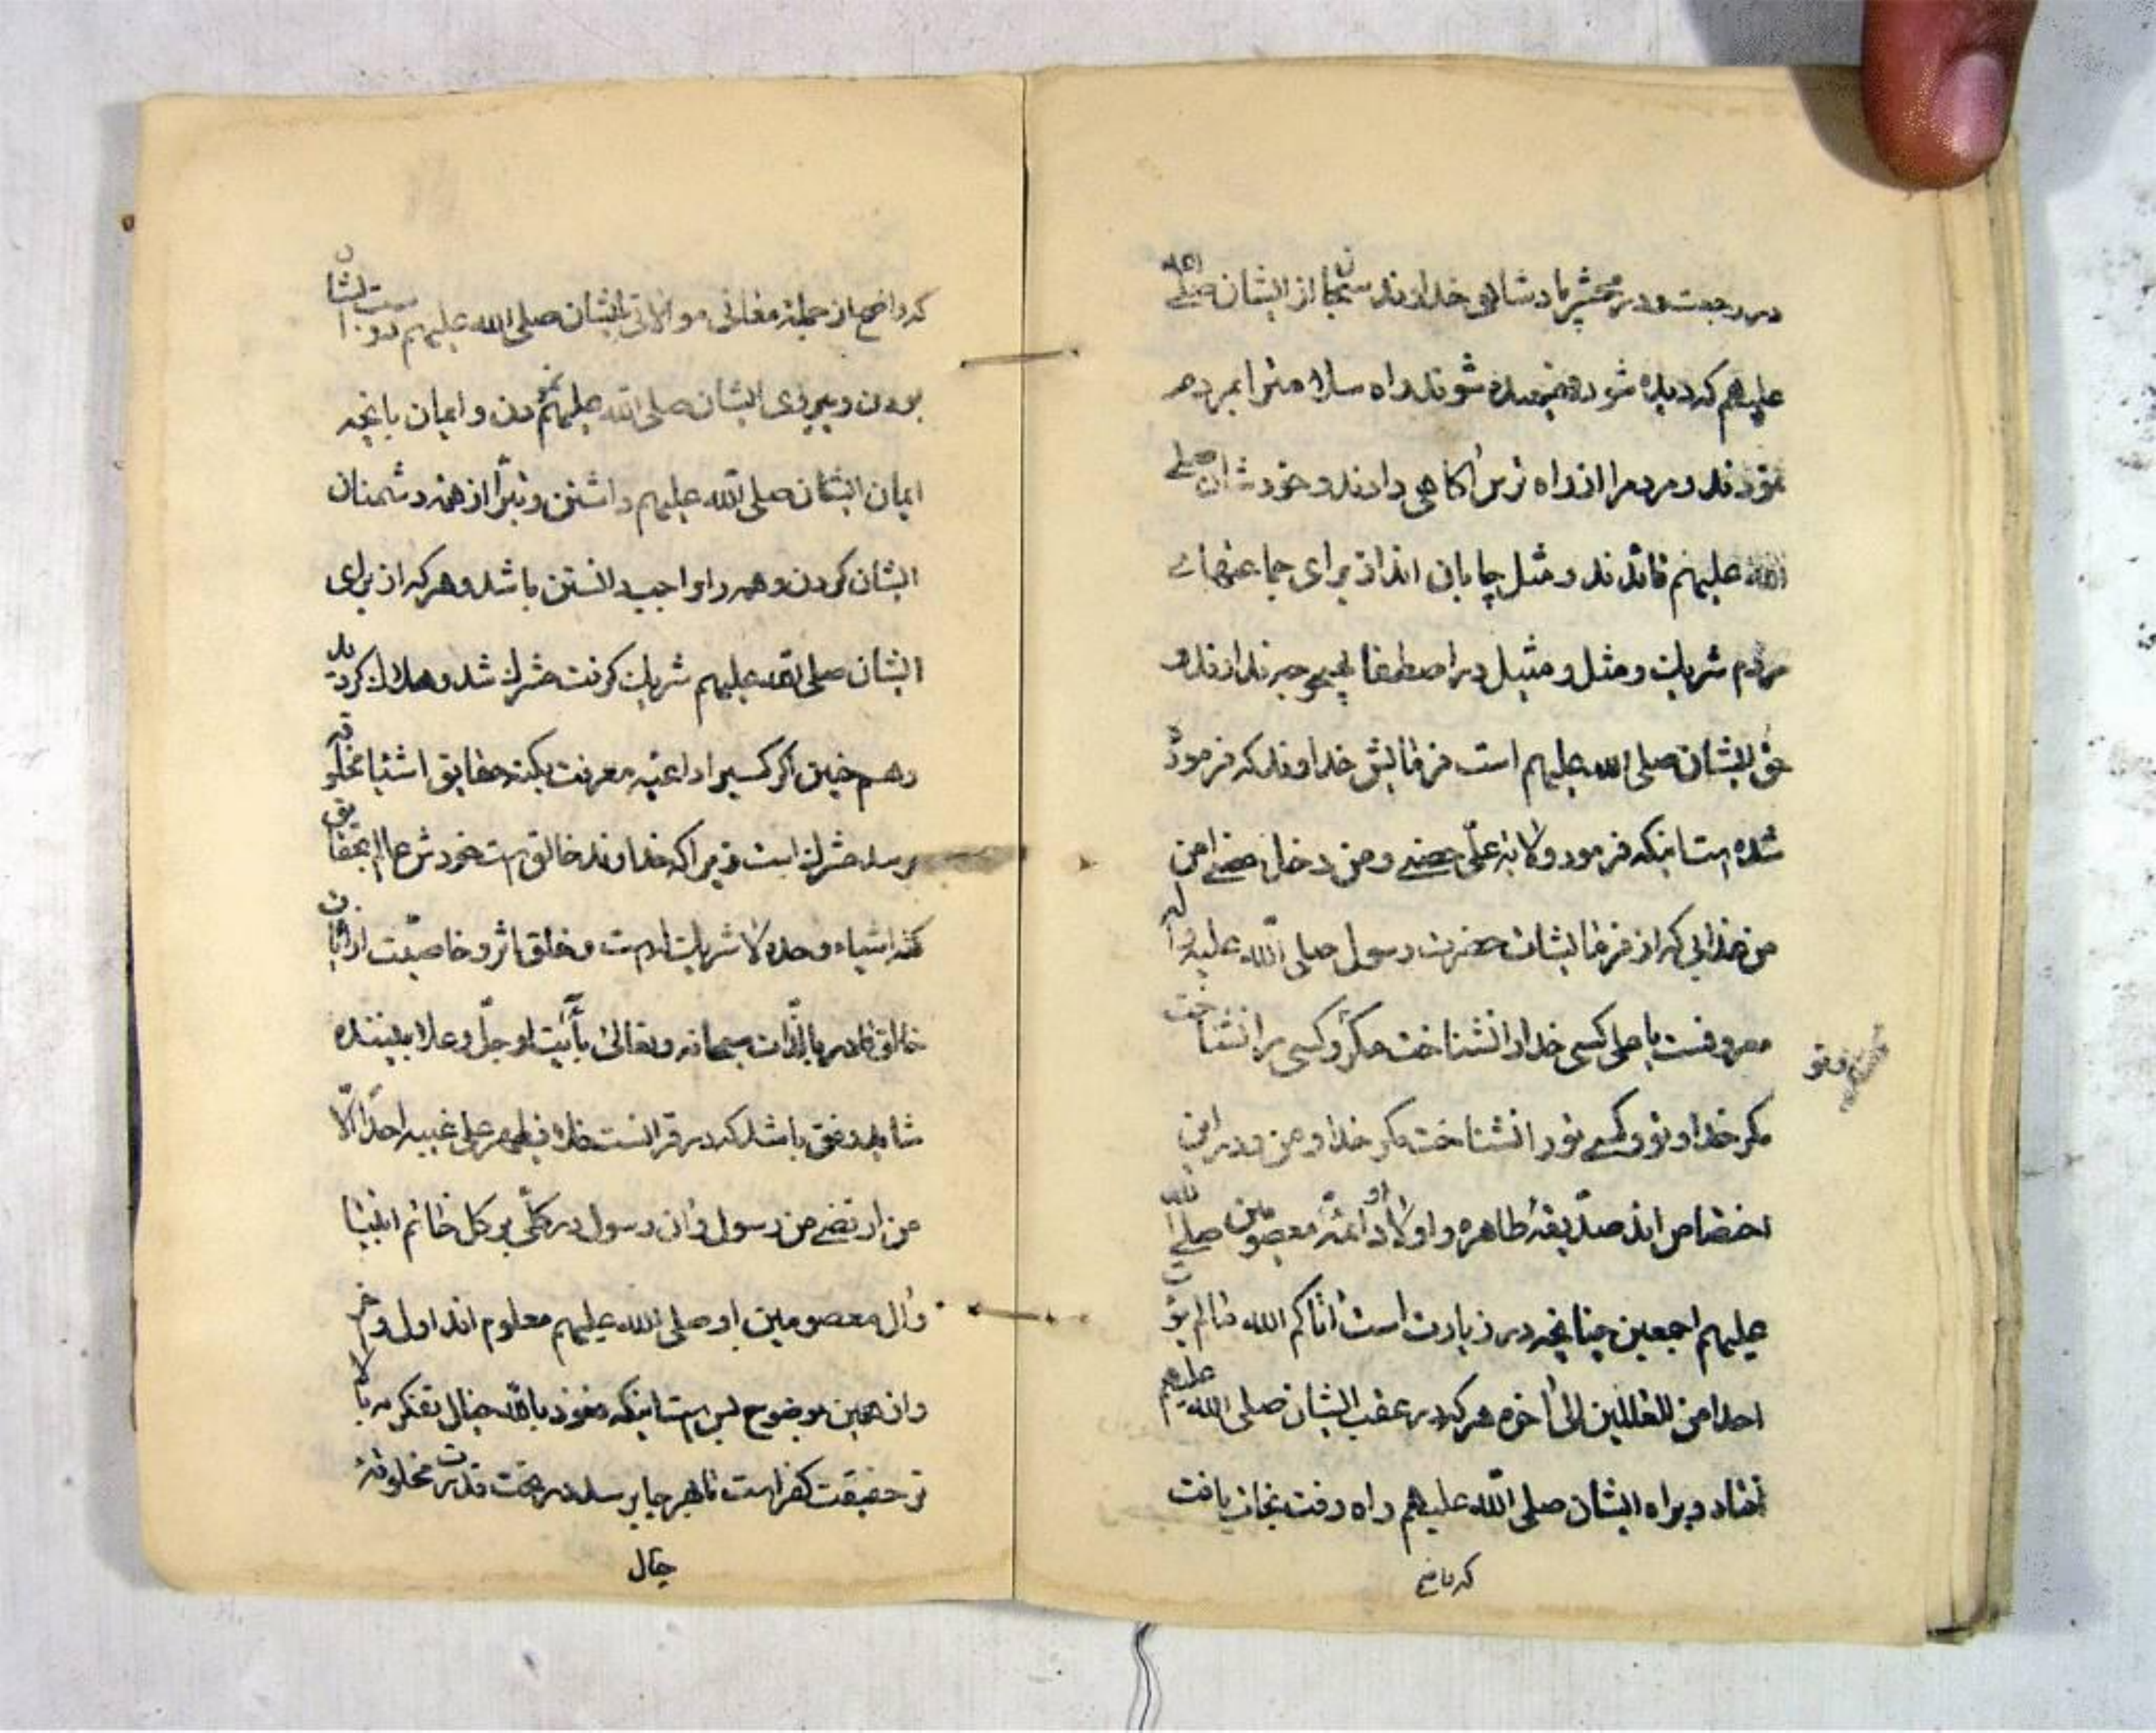 در رجعت و در محشر پادشاهی خداوند سبحان از ایشان صلی الله
علیهم که دیده شود فهمیده شوند راه سلامترا بمردم
نمودند و مردم را از راه آگاهی دادند و خودشان صلی
الله علیهم قائدند و مثل برای جماعتهای
مردم شریک و مثل و مثیل در اصطفا بهیچوجه ندارند و
حق ایشان صلی الله علیهم است فرمایش خداوند که فرموده
شده است اینکه فرمود ولایة علی حصنی و من دخل حصنی امن
من عذابی که از فرمایشات حضرت رسول صلی الله علیه و آله
معروفست یا علی کسی خدا را نشناخت مگر و کسی مرا نشناخت
و تو
مگر خدا و تو و کسی تو را نشناخت مگر خدا و من و در این
اختصاص اند صدیقهٔ طاهره و اولاد او ائمهٔ معصومین صلی الله
علیهم اجمعین چنانچه در زیارت است آتاکم الله مالم یؤت
احدا من العالمین الی آخره هر که در عقب ایشان صلی الله علیهم
افتاد و براه ایشان صلی الله علیهم راه رفت نجات یافت
که واضح
که واضح از جمله معانی موالات ایشان صلی الله علیهم دوستشان
بودن و پیروی ایشان صلی الله علیهم نمودن و ایمان بانچه
ایمان ایشان صلی الله علیهم داشتن و تبرا از همه دشمنان
ایشان کردن و همه را واجب دانستن باشد و هر که از برای
ایشان صلی الله علیهم شریک گرفت مشرک شد و هلاک گردید
و هم چنین اگر کسیرا داعیه معرفت بکنه حقایق اشیا مخلوقه
برسد مشرک است زیرا که خداوند خالق است خودش عالم بحقایق
کنه اشیاء وحده لا شریک له است و خلق اثر و خاصیت
خالق قادر بالذات سبحانه و تعالی بآیت او جل و علا بیننده
شاهد و حق باشد که در قرانست فلا یظهر علی غیبه احدا الا
من ارتضی من رسول و ان رسول در کلی بر کل خاتم انبیا
و آل معصومین او صلی الله علیهم معلوم اند اول و آخر
و از همین موضوح بس است اینکه نعوذ بالله خیال تفکر
تر حقیقت کفر است تا هر جا برسد در تحت قدرت مخلوقه
خیال